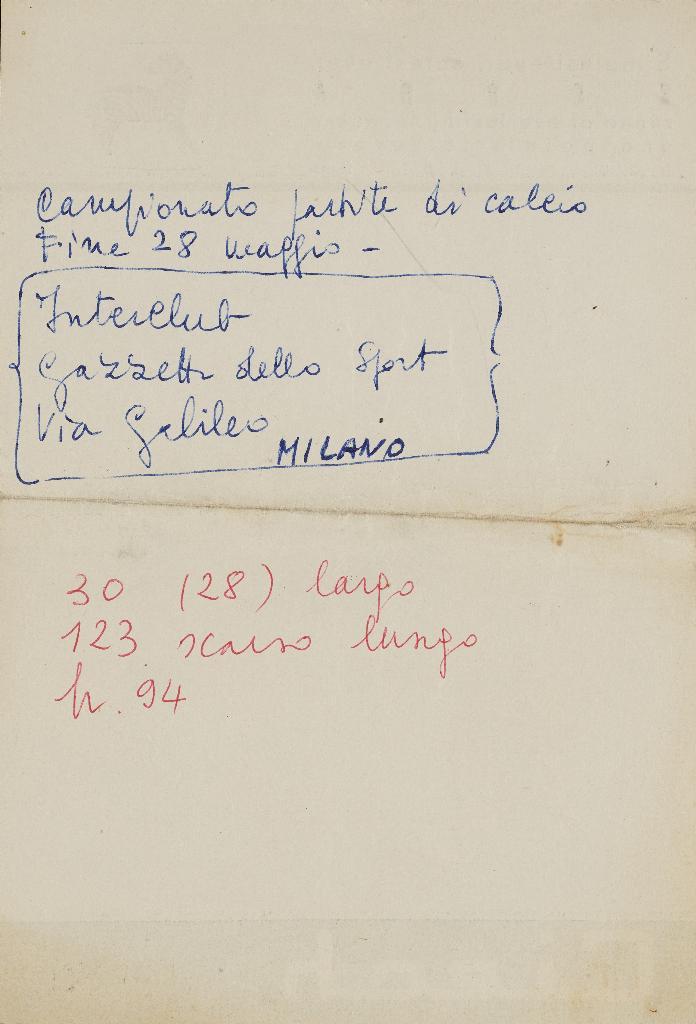 Campionato partite di calcio
Fine 28 maggio -
Interclub
Gazzetta dello Sport
Via Galileo
MILANO
30 (28) largo
123 scarso lungo
h. 94